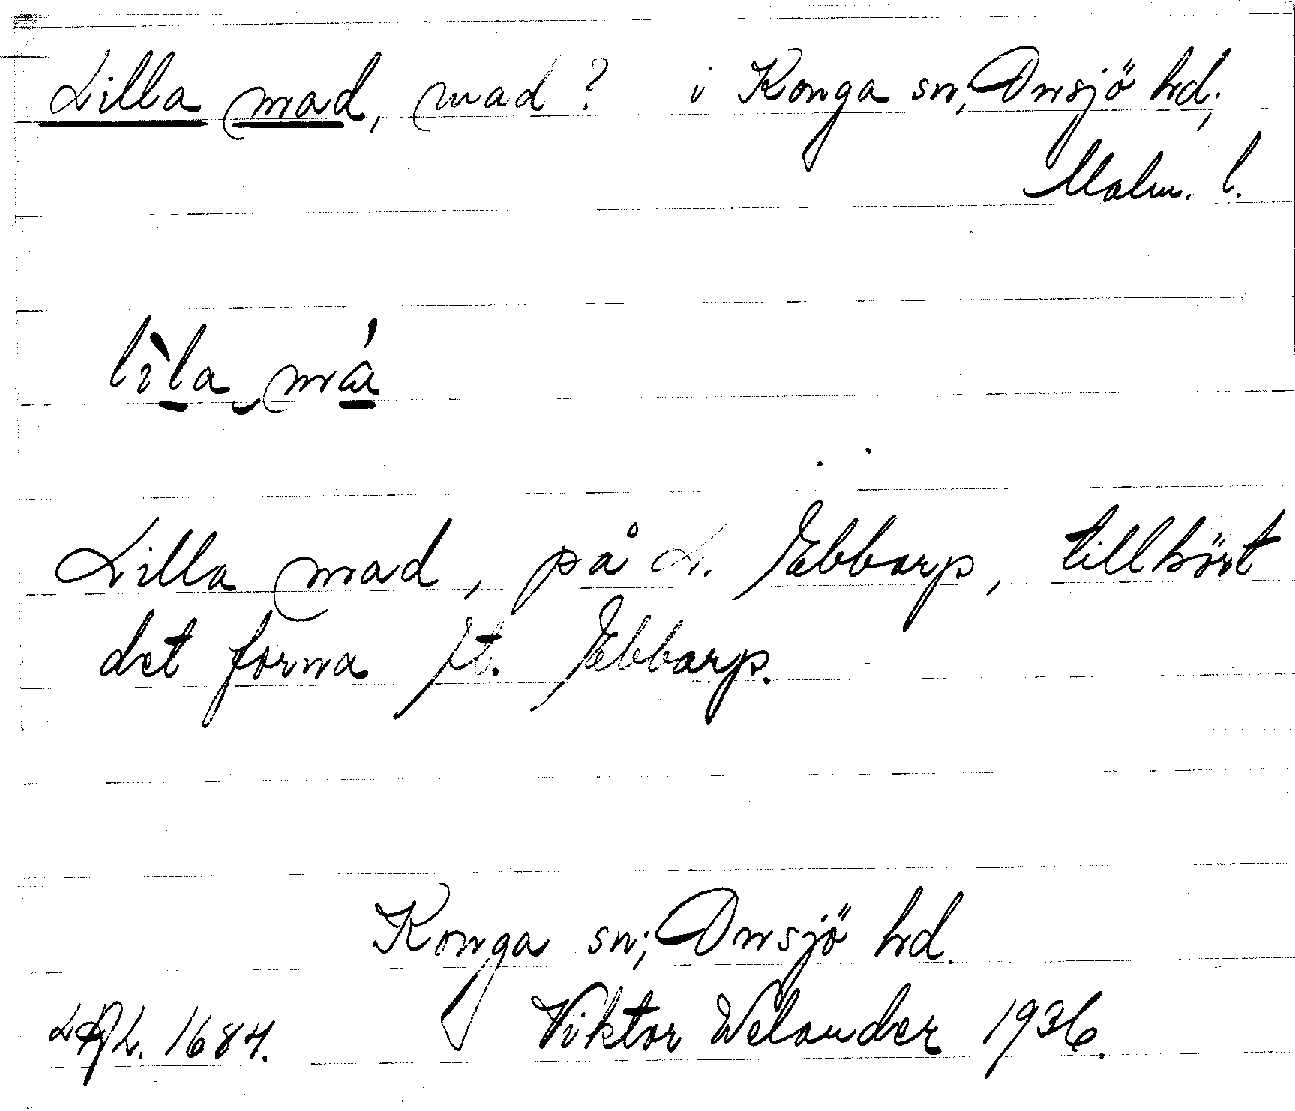 Lilla mad, mad? i Konga sn, Onsjö hd;
Malm. l.
lìla má
Lilla mad, på L. Ebbarp, tillhört
det forna St. Ebbarp.
Konga sn; Onsjö hd.
LAL. 1684. Viktor Welander 1936.